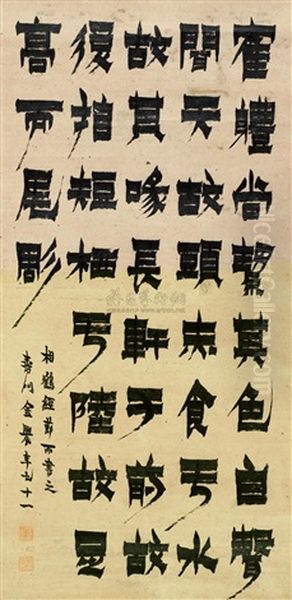 寉體尚潔其色白聲
聞天故頭赤食亏水
故其喙長軒于前故
後指短栖亏陸故足
高而尾彫
相鶴經節而書之
壽門金農年六十一